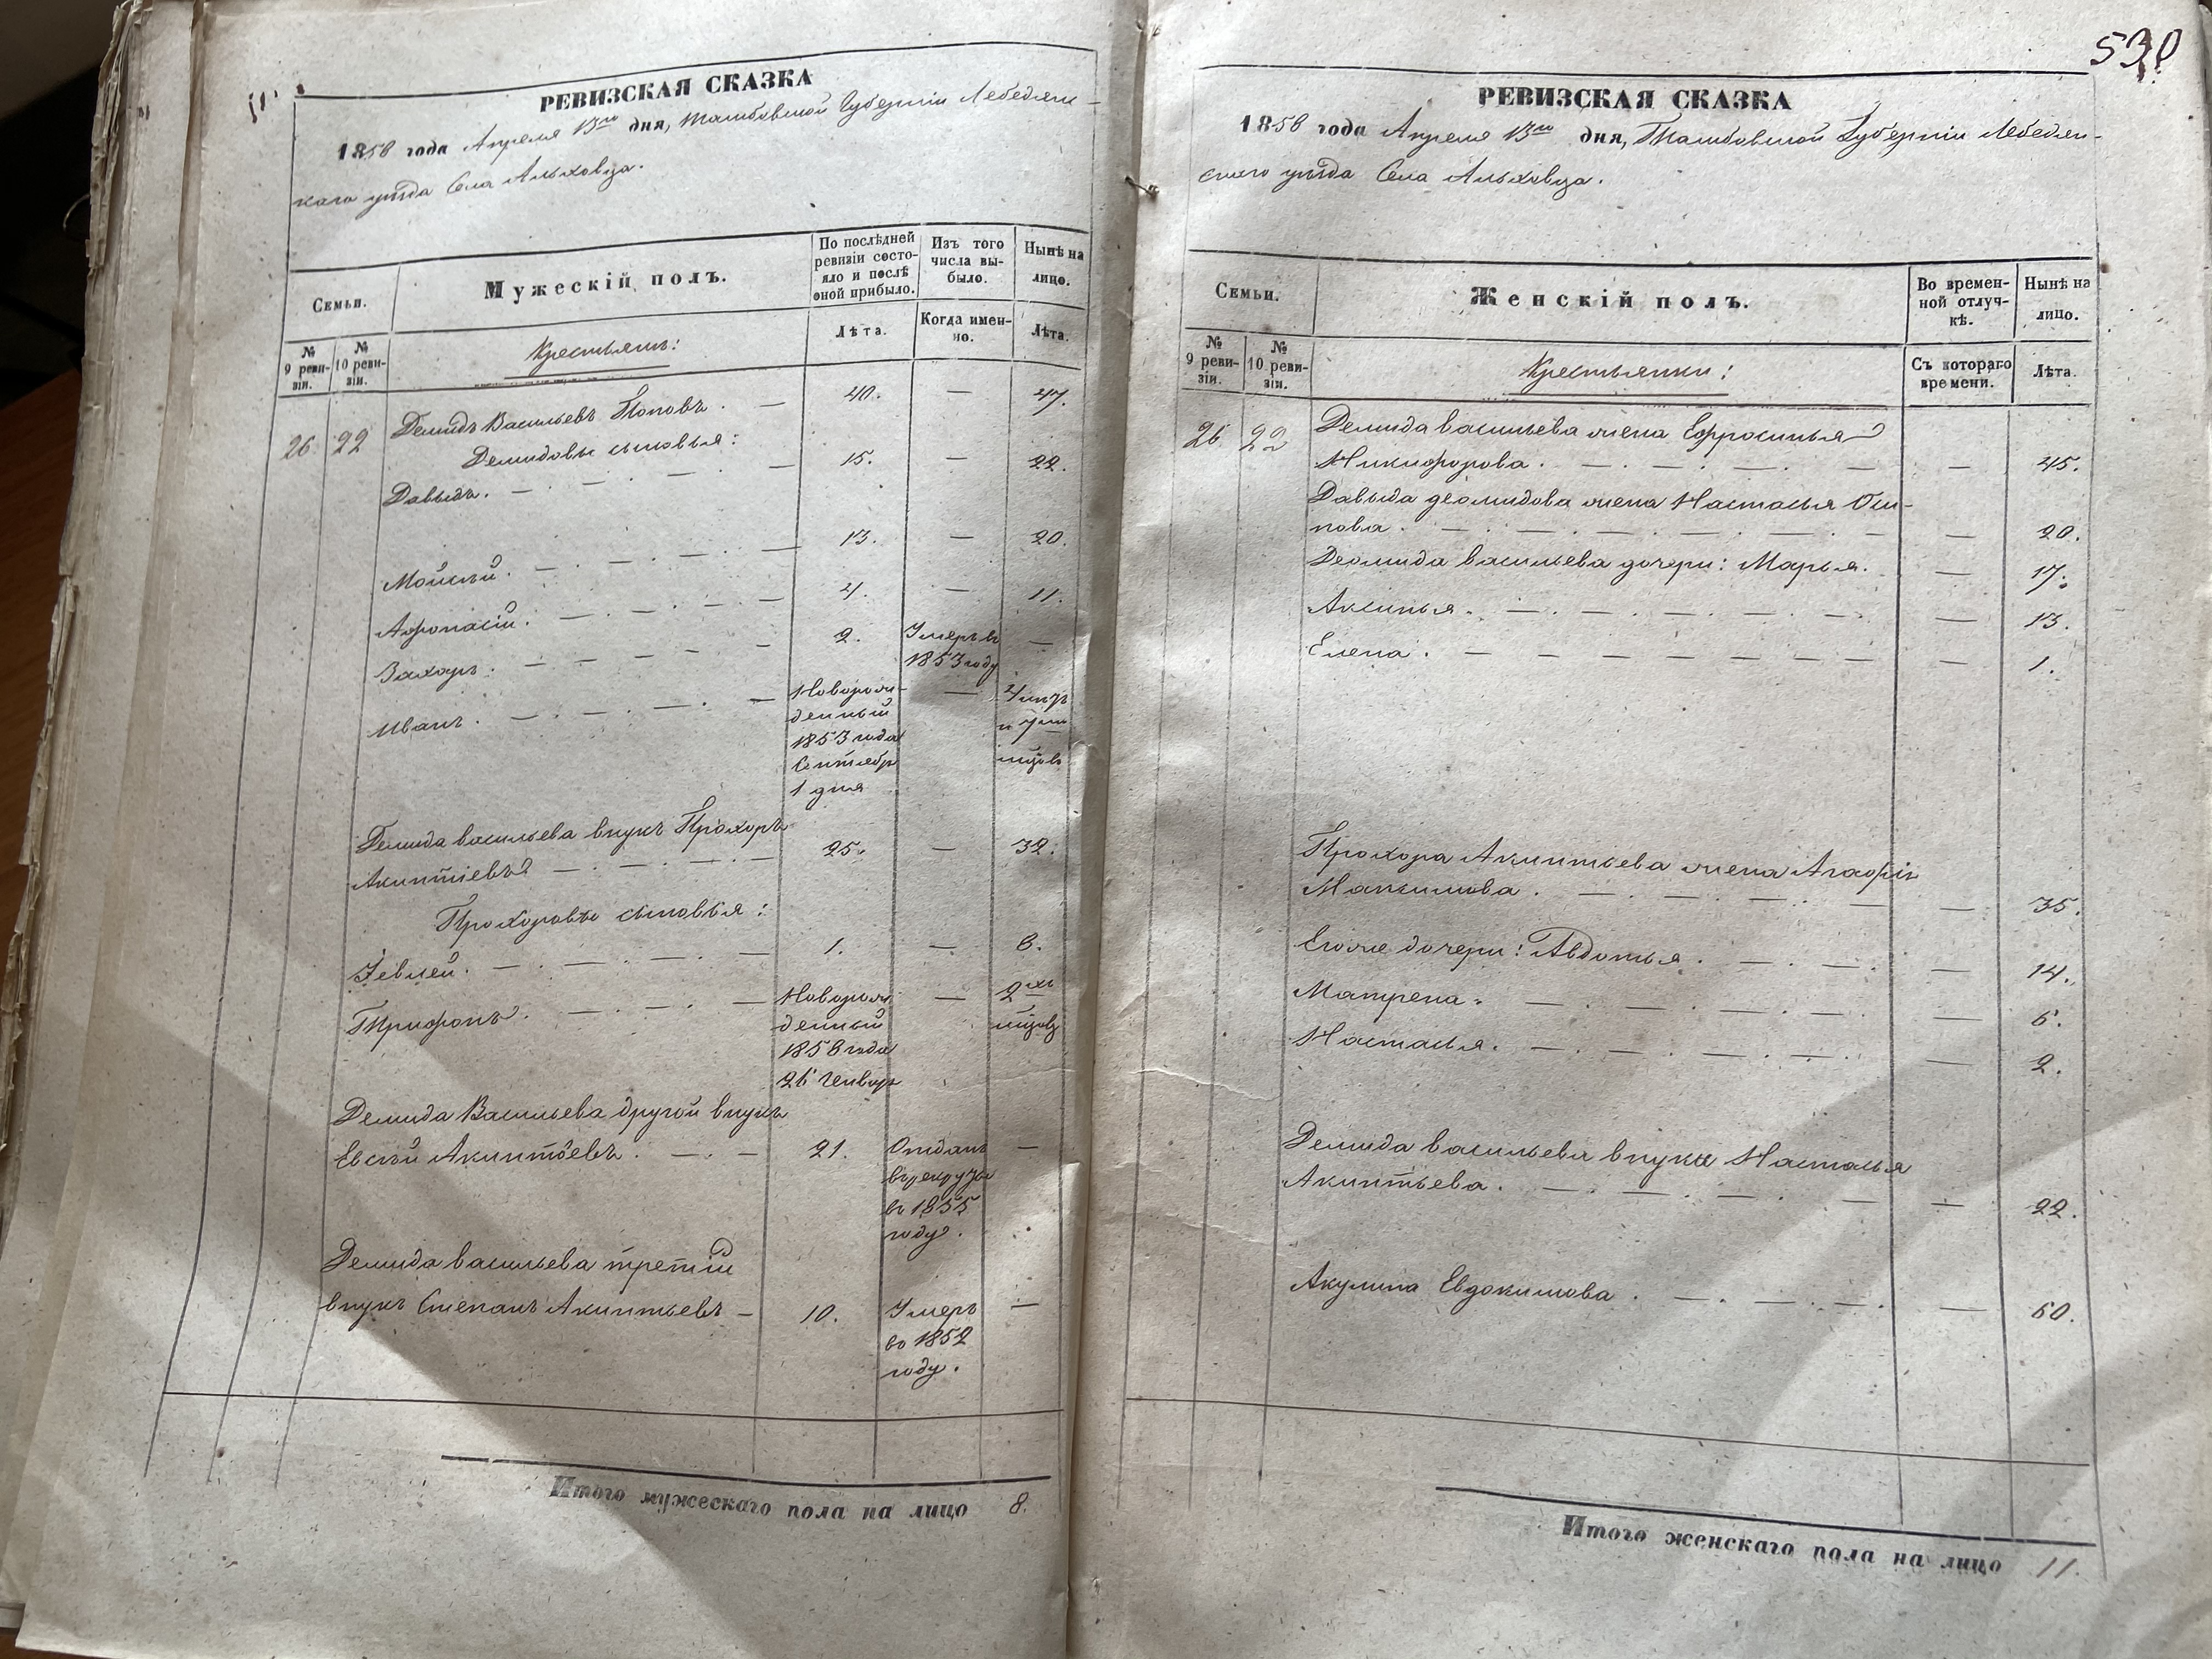 РЕВИЗСКАЯ СКАЗКА
1858 года Апреля 13го дня, Тамбовской Губернiи Лебедян-
скаго уѣзда Села Альховца.
Семьи.
Мужескiй полъ.
По послѣдней ревизiи состо-
яло и послѣ оной прибыло.
Изъ того числа вы-
было.
Нынѣ на лицо.
№ 9 реви-
зiи.
№ 10 реви-
зiи.
Крестьянъ:
Лѣта.
Когда имен-
но.
Лѣта.
26 22 Демидъ Васильевъ Поповъ. 40. — 47.
Демидовы сыновья:
Давыдъ. 15. — 22.
Мойсѣй. 13. — 20.
Афонасiй. 4. — 11.
Захаръ. 2. Умеръ въ 1853 году —
Иванъ. Новорож-
денный 1853 года Сентябр 1 дня — 4
Демида Васильева внукъ Прохоръ
Акинтiевъ 25. — 32.
Прохоровы сыновья:
Iевлей. 1. — 8.
Трифонъ. Новорож
денный 1858 года 26 Генвар — 2хъ
Демида Васильева другой внукъ
Евсѣй Акинтѣевъ. 21. Отданъ въ рекруты въ 1855 году. —
Демида Васильева третiй
внукъ Степанъ Акинтьевъ — 10. Умеръ во 1852 году. —
Итого мужескаго пола на лицо 8.
530
РЕВИЗСКАЯ СКАЗКА
1858 года Апреля 13го дня, Тамбовской Губернiи Лебедян-
скаго уѣзда Села Альховца.
Семьи.
Женскiй полъ.
Во времен-
ной отлуч-
кѣ.
Нынѣ на лицо.
№ 9 реви-
зiи.
№ 10 реви-
зiи.
Крестьянки:
Съ котораго времени.
Лѣта.
26 22 Демида Васильева жена Ефросинья
Никифорова. — 45.
Давыда Деомидова жена Настасья Оси-
пова. — 20.
Деомида Васильева дочери: Марья. — 17.
Аксинья. — 13.
Елена. — 1.
Прохора Акинтьева жена Агафiя
Максимова. — 35.
Егоже дочери: Авдотья. — 14.
Матрена. — 6.
Настасья. — 2.
Демида Васильева внука Настасья
Акинтьева. — 22.
Акулина Евдокимова. — 60.
Итого женскаго пола на лицо 11.